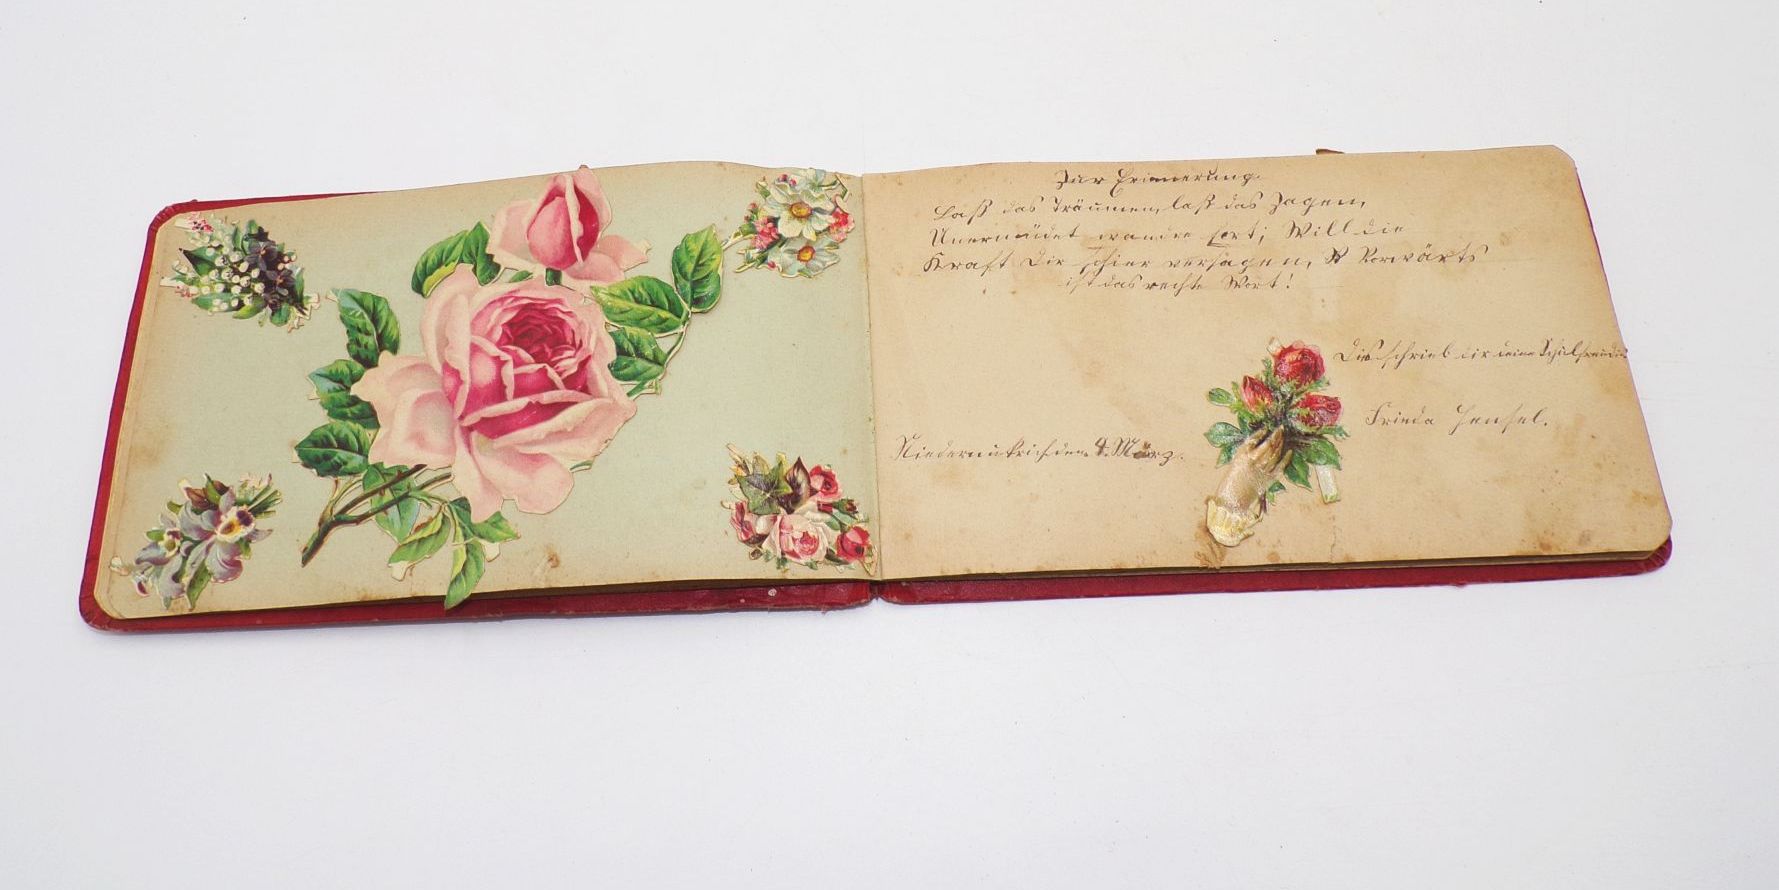 Zur Erinnerung.
Laß das Träumen, laß das Zagen,
Unermüdet wandre fort; Will die
Kraft dir schier versagen, Vorwärts
ist das rechte Wort!
Dies schrieb dir deine Schulfreundin
Frieda Hensel.
den 4. März.